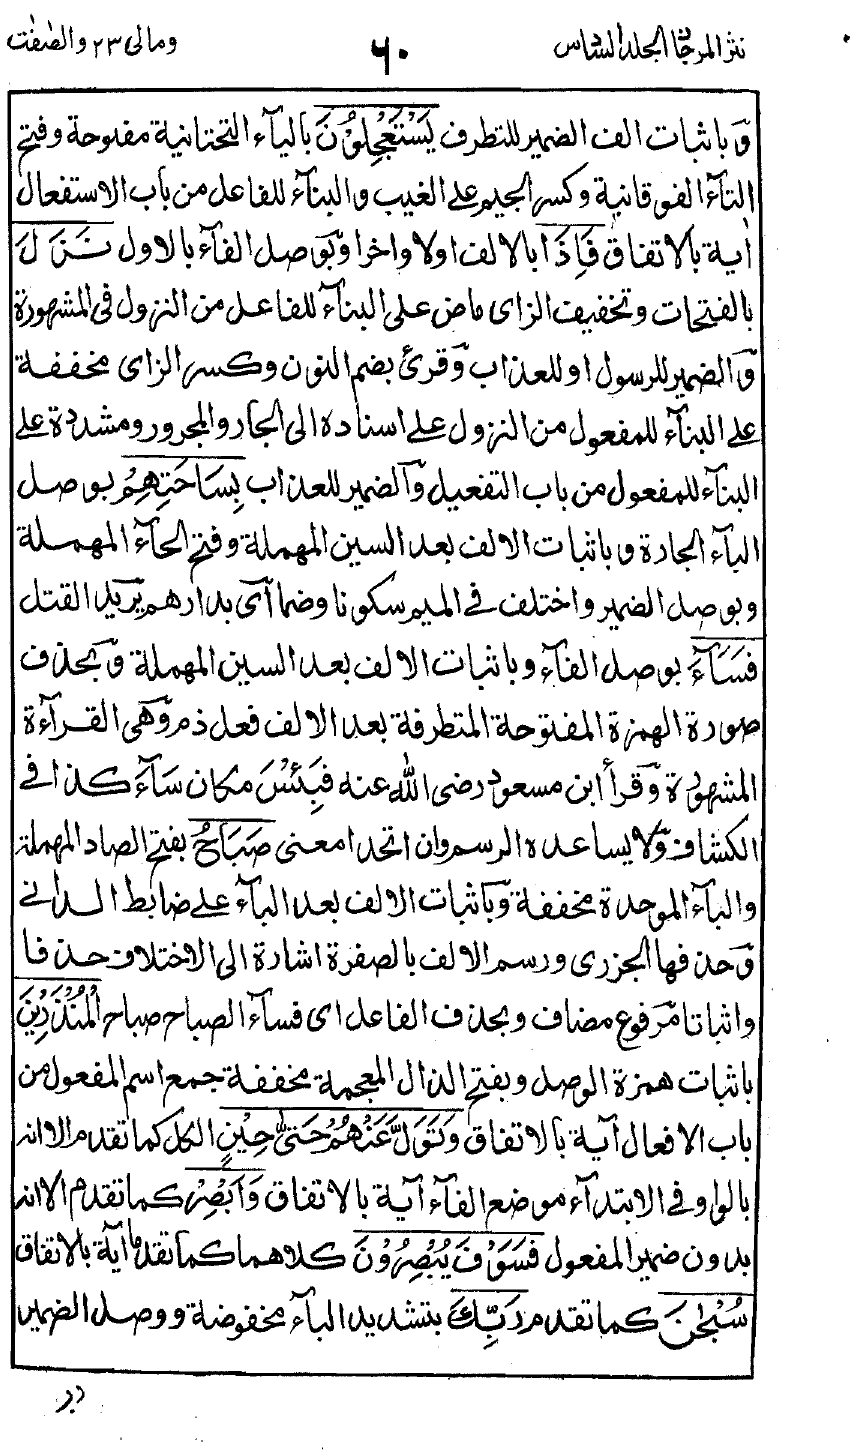 نثر المرجان المجلد السادس ٦٠ ومالی ٢٣ والصٰفٰت
وباثبات الف الضمير للتطرف يَسْتَعْجِلُوْنَ بالياء التحتانية مفتوحة وفتح
التآء الفوقانية وكسر الجيم على الغيب والبنآء للفاعل من باب الاستفعال
اٰية بالاتفاق فَاِذَا بالالف اولا واخرا وبوصل الفآء بالاول نَزَلَ
بالفتحات وتخفيف الزاى ماض على البنآء للفاعل من النزول فى المشهورة
والضمير للرسول او للعذاب وقرئ بضم النون وكسر الزاى مخففة
على البنآء للمفعول من النزول على اسناده الى الجار والمجرور ومشددة على
البنآء للمفعول من باب التفعيل والضمير للعذاب بِسَاحَتِهِمْ بوصل
البآء الجارة وباثبات الالف بعد السين المهملة وفتح الحآء المهملة
وبوصل الضمير واختلف فى الميم سكونا وضما اى بدارهم يريد القتل
فَسَآءَ بوصل الفآء وباثبات الالف بعد السين المهملة وبحذف
صورة الهمزة المفتوحة المتطرفة بعد الالف فعل ذم وهى القرآءة
المشهورة وقرأ ابن مسعود رضى الله عنه فَبِئْسَ مكان سَآءَ كذا فى
الكشاف ولا يساعده الرسم وان اتحدا معنى صَبَاحُ بفتح الصاد المهملة
والبآء الموحدة مخففة وباثبات الالف بعد البآء على ضابط الدانى
وحذفها الجزرى ورسم الالف بالصفرة اشارة الى الاختلاف حذفا
واثباتا مرفوع مضاف وبحذف الفاعل اى فسآء الصباح صباح الْمُنْذَرِيْنَ
باثبات همزة الوصل وبفتح الذال المعجمة مخففة جمع اسم المفعول من
باب الافعال اٰية بالاتفاق وَتَوَلَّ عَنْهُمْ حَتّٰى حِيْنٍ الكل كما تقدم الا انه
بالواو فى الابتدآء موضع الفآء اٰية بالاتفاق وَاَبْصِرْ كما تقدم الا انه
بدون ضمير المفعول فَسَوْفَ يُبْصِرُوْنَ كلاهما كما تقدما اٰية بالاتفاق
سُبْحٰنَ كما تقدم رَبِّكَ بتشديد البآء مخفوضة ووصل الضمير